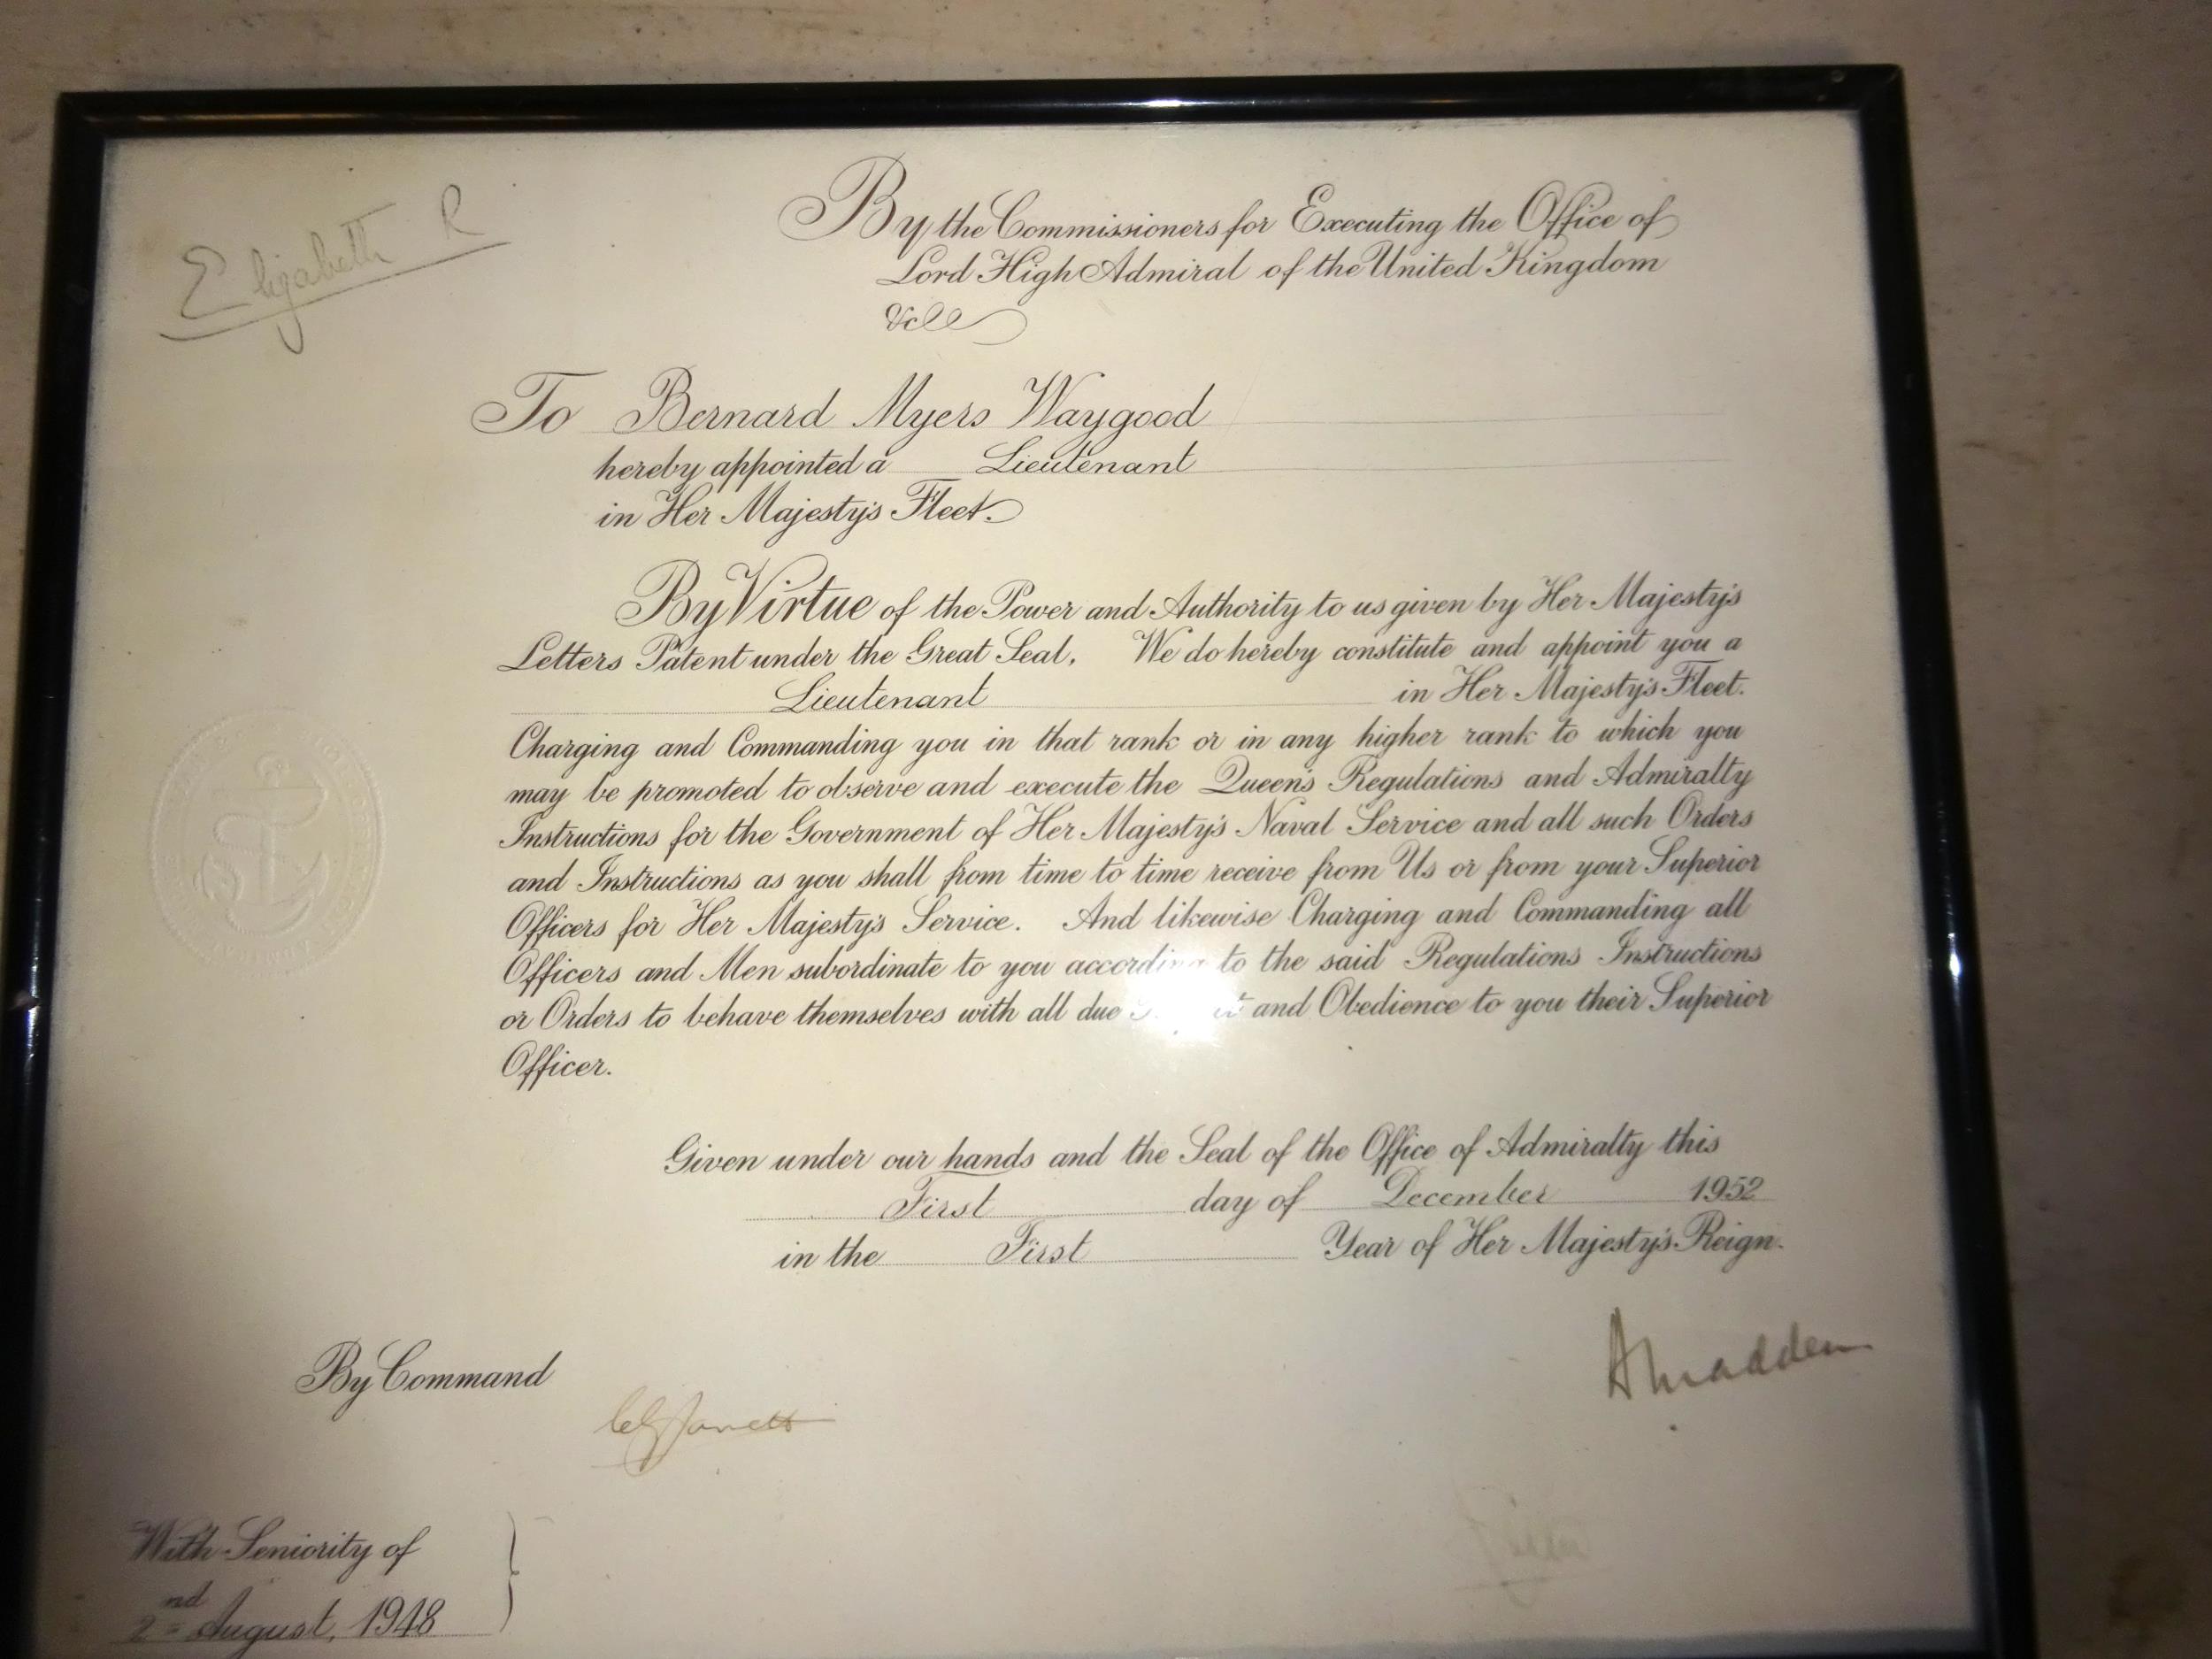 Elizabeth R
By the Commissioners for Executing the Office of
Lord High Admiral of the United Kingdom
&c &c
To Bernard Myers Waygood
hereby appointed a Lieutenant
in Her Majesty's Fleet.
By Virtue of the Power and Authority to us given by Her Majesty's
Letters Patent under the Great Seal, We do hereby constitute and appoint you a
Lieutenant in Her Majesty's Fleet.
Charging and Commanding you in that rank or in any higher rank to which you
may be promoted to observe and execute the Queen's Regulations and Admiralty
Instructions for the Government of Her Majesty's Naval Service and all such Orders
and Instructions as you shall from time to time receive from Us or from your Superior
Officers for Her Majesty's Service. And likewise Charging and Commanding all
Officers and Men subordinate to you according to the said Regulations Instructions
or Orders to behave themselves with all due and Obedience to you their Superior
Officer.
Given under our hands and the Seal of the Office of Admiralty this
First day of December 1952
in the First Year of Her Majesty's Reign.
AMadden
By Command
With Seniority of
2nd August, 1948